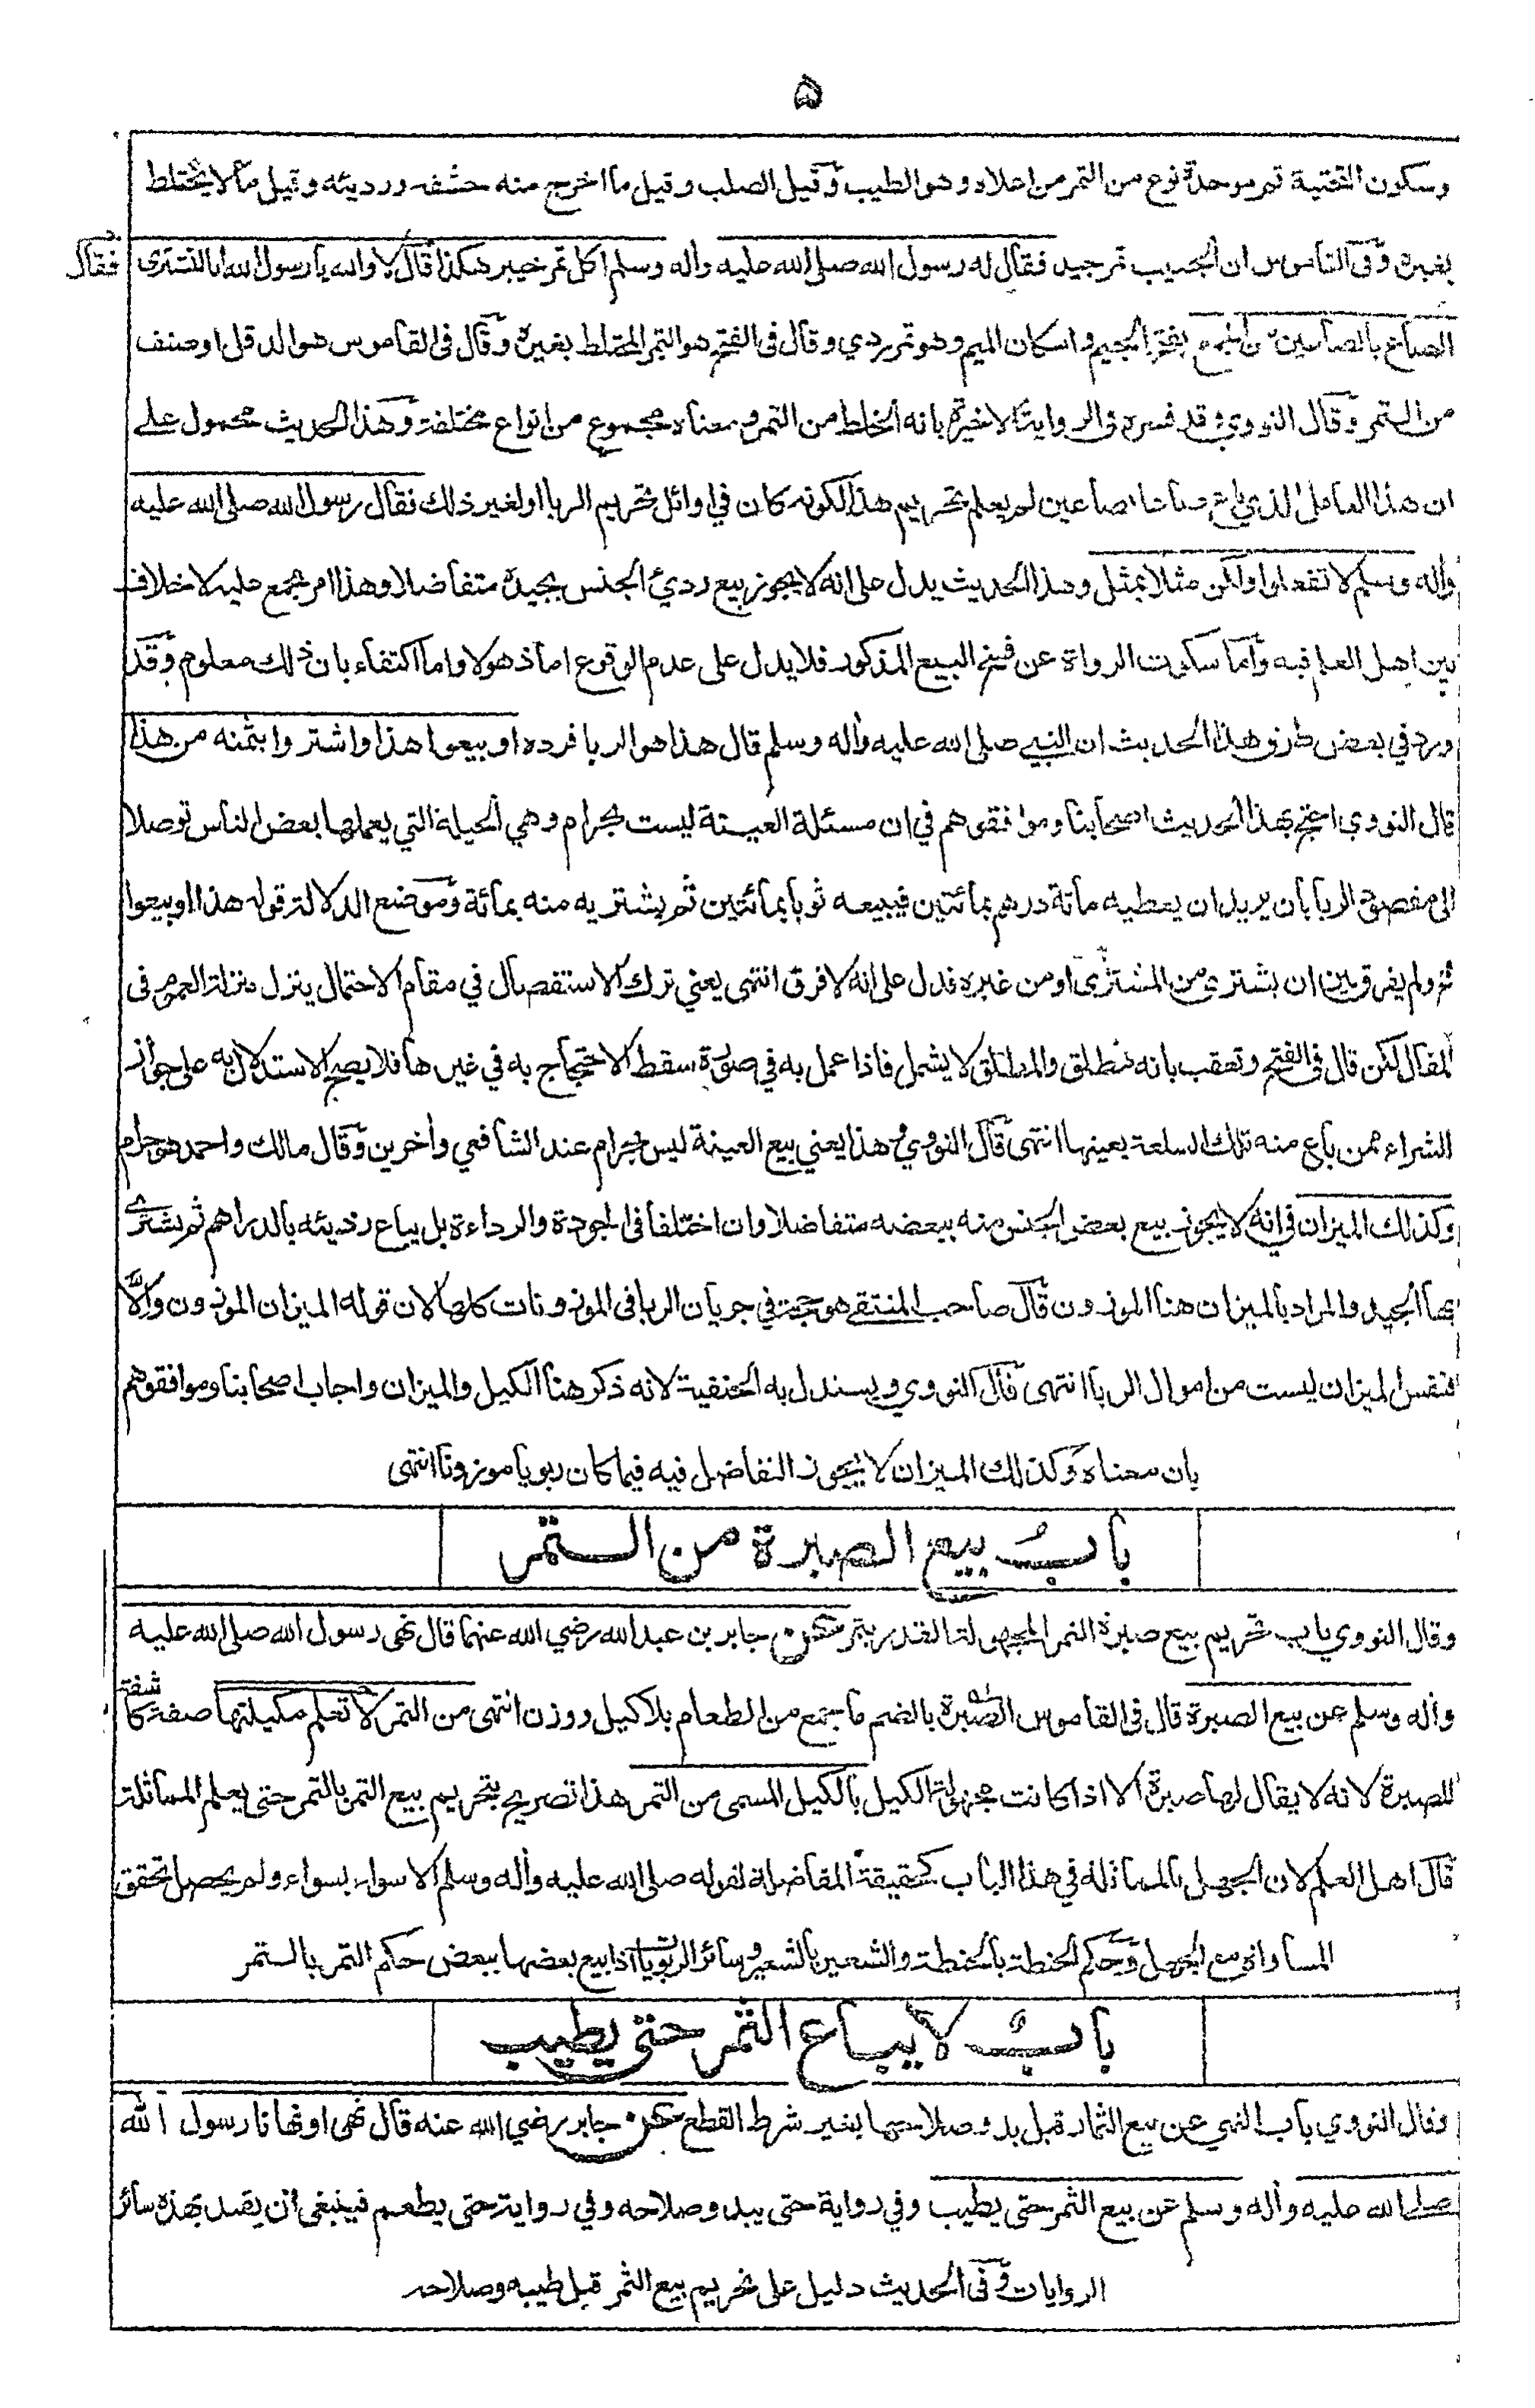 ۵
وسكون التحتية ثم موحدة نوع من التمر من اعلاه وهو الطيب وقيل الصلب وقيل ما اخرج منه حشفه ورديئه وقيل ما لا يختلط
بغيره وفى القاموس ان الجنيب تمر جيد فقال له رسول الله صلى الله عليه وأله وسلم اكل تمر خيبر هكذا قال لا والله يا رسول الله انا لنشترى فقال
الصاع بالصاعين من الجمع بفتح الجيم واسكان الميم وهو تمر ردي وقال فى الفتح هو التمر المختلط بغيره وقال فى القاموس هو الدقل او صنف
من التمر وقال النووي وقد فسره فى الرواية الاخيرة بانه الخلط من التمر ومعناه مجموع من انواع مختلفة وهذا الحديث محمول على
ان هذا العامل الذي باع صاعا بصاعين لم يعلم تحريم هذا لكونه كان في اوائل تحريم الربا او لغير ذلك فقال رسول الله صلى الله عليه
وأله وسلم لا تفعلوا ولكن مثلا بمثل وهذا الحديث يدل على انه لا يجوز بيع رديئ الجنس بجيده متفاضلا وهذا امر مجمع عليه لا خلاف
بين اهل العلم فيه واما سكوت الرواة عن فسخ البيع المذكور فلا يدل على عدم الوقوع اما ذهولا واما اكتفاء بان ذلك معلوم وقد
ورد في بعض طرق هذا الحديث ان النبي صلى الله عليه وأله وسلم قال هذا هو الربا فرده او بيعوا هذا واشتروا بثمنه من هذا
قال النووي احتج بهذا الحديث اصحابنا وموافقوهم في ان مسئلة العينة ليست بحرام وهي الحيلة التي يعملها بعض الناس توصلا
الى مقصود الربا بان يريد ان يعطيه مائة درهم بمائتين فيبيعه ثوبا بمائتين ثم يشتريه منه بمائة وموضع الدلالة قوله هذا او بيعوا
ثم ولم يفرق بين ان يشترى من المشترى او من غيره فدل على انه لا فرق انتهى يعني ترك الاستفصال في مقام الاحتمال ينزل منزلة العموم فى
المقال لكن قال فى الفتح وتعقب بانه مطلق والمطلق لا يشمل فاذا عمل به في صورة سقط الاحتجاج به في غيرها فلا يصح الاستدلال به على جواز
الشراء ممن باع منه تلك السلعة بعينها انتهى قال النووي هذا يعني بيع العينة ليس بحرام عند الشافعي وأخرين وقال مالك واحمد هو حرام
وكذلك الميزان في انه لا يجوز بيع بعض الجنس منه ببعضه متفاضلا وان اختلفا فى الجودة والرداءة بل يباع رديئه بالدراهم ثم يشترى
بها الجيد والمراد بالميزان هنا الموزون قال صاحب المنتقى هو حجة في جريان الربا فى الموزونات كلها لان قوله الميزان الموزون والا
فنفس الميزان ليست من اموال الربا انتهى قال النووي ويستدل به الحنفية لانه ذكر هنا الكيل والميزان واجاب اصحابنا وموافقوهم
بان معناه وكذلك الميزان لا يجوز التفاضل فيه فيما كان ربويا موزونا انتهى
باب بيع الصبرة من التمر
وقال النووي باب تحريم بيع صبرة التمر المجهولة القدر بتمر عن جابر بن عبد الله رضي الله عنهما قال نهى رسول الله صلى الله عليه
وأله وسلم عن بيع الصبرة قال فى القاموس الصبرة بالضم ما جمع من الطعام بلا كيل ووزن انتهى من التمر لا تعلم مكيلتها صفة كاشفة
للصبرة لانه لا يقال لها صبرة الا اذا كانت مجهولة الكيل بالكيل المسمى من التمر هذا تصريح بتحريم بيع التمر بالتمر حتى يعلم المماثلة
قال اهل العلم لان الجهل بالمماثلة في هذا الباب كحقيقة المفاضلة لقوله صلى الله عليه وأله وسلم الا سواء بسواء ولم يحصل تحقق
المساواة مع الجهل وحكم الحنطة بالحنطة والشعير بالشعير وسائر الربويات اذا بيع بعضها ببعض حكم التمر بالتمر
باب لا يباع الثمر حتى يطيب
وقال النووي باب النهي عن بيع الثمار قبل بدو صلاحها بغير شرط القطع عن جابر رضي الله عنه قال نهى او نهانا رسول الله
صلى الله عليه وأله وسلم عن بيع الثمر حتى يطيب وفي رواية حتى يبدو صلاحه وفي رواية حتى يطعم فينبغي ان يقيد بهذه سائر
الروايات وفى الحديث دليل على تحريم بيع الثمر قبل طيبه وصلاحه